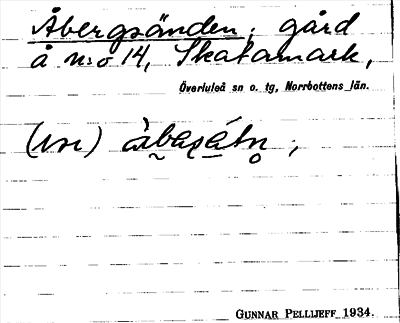 Åbergsänden; gård
å n:o 14, Skatamark,
Överluleå sn o. tg, Norrbottens län.
(un)
GUNNAR PELLIJEFF 1934.